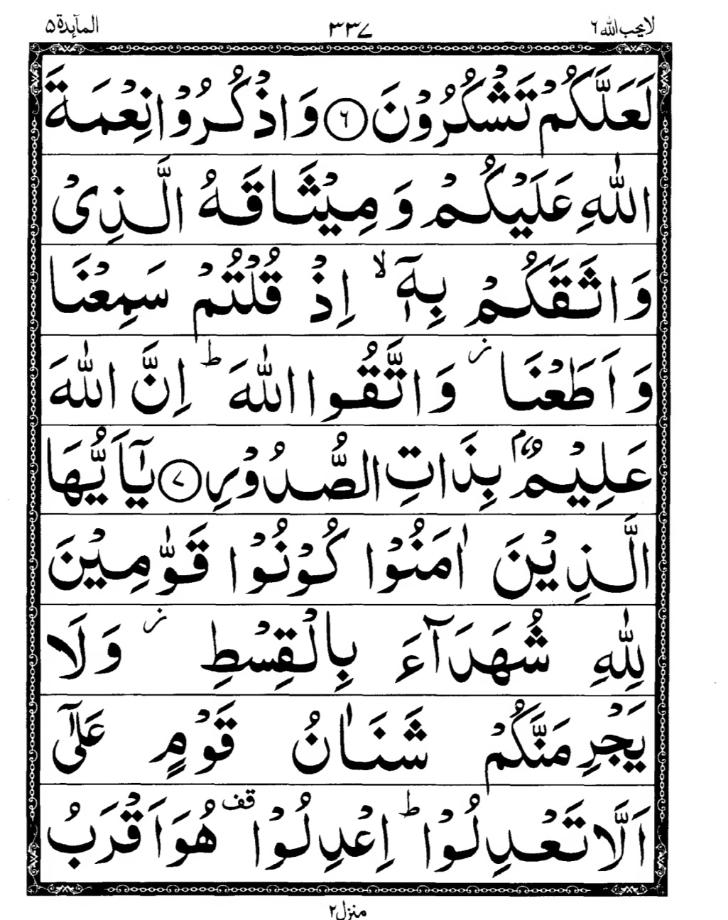 المآئدة ۵ ۳۳۷ لا یحب الله ۶
لَعَلَّكُمْ تَشْكُرُوْنَ ۶ وَاذْكُرُوْا نِعْمَةَ
اللّٰهِ عَلَيْكُمْ وَ مِيْثَاقَهُ الَّذِیْ
وَاثَقَكُمْ بِهٖۤ ۙ اِذْ قُلْتُمْ سَمِعْنَا
وَ اَطَعْنَا ؗ وَ اتَّقُوا اللّٰهَ ؕ اِنَّ اللّٰهَ
عَلِيْمٌۢ بِذَاتِ الصُّدُوْرِ ۷ يٰۤاَيُّهَا
الَّذِيْنَ اٰمَنُوْا كُوْنُوْا قَوّٰمِيْنَ
لِلّٰهِ شُهَدَآءَ بِالْقِسْطِ ؗ وَلَا
يَجْرِمَنَّكُمْ شَنَاٰنُ قَوْمٍ عَلٰۤی
اَلَّا تَعْدِلُوْا ؕ اِعْدِلُوْا قف هُوَ اَقْرَبُ
منزل ۲